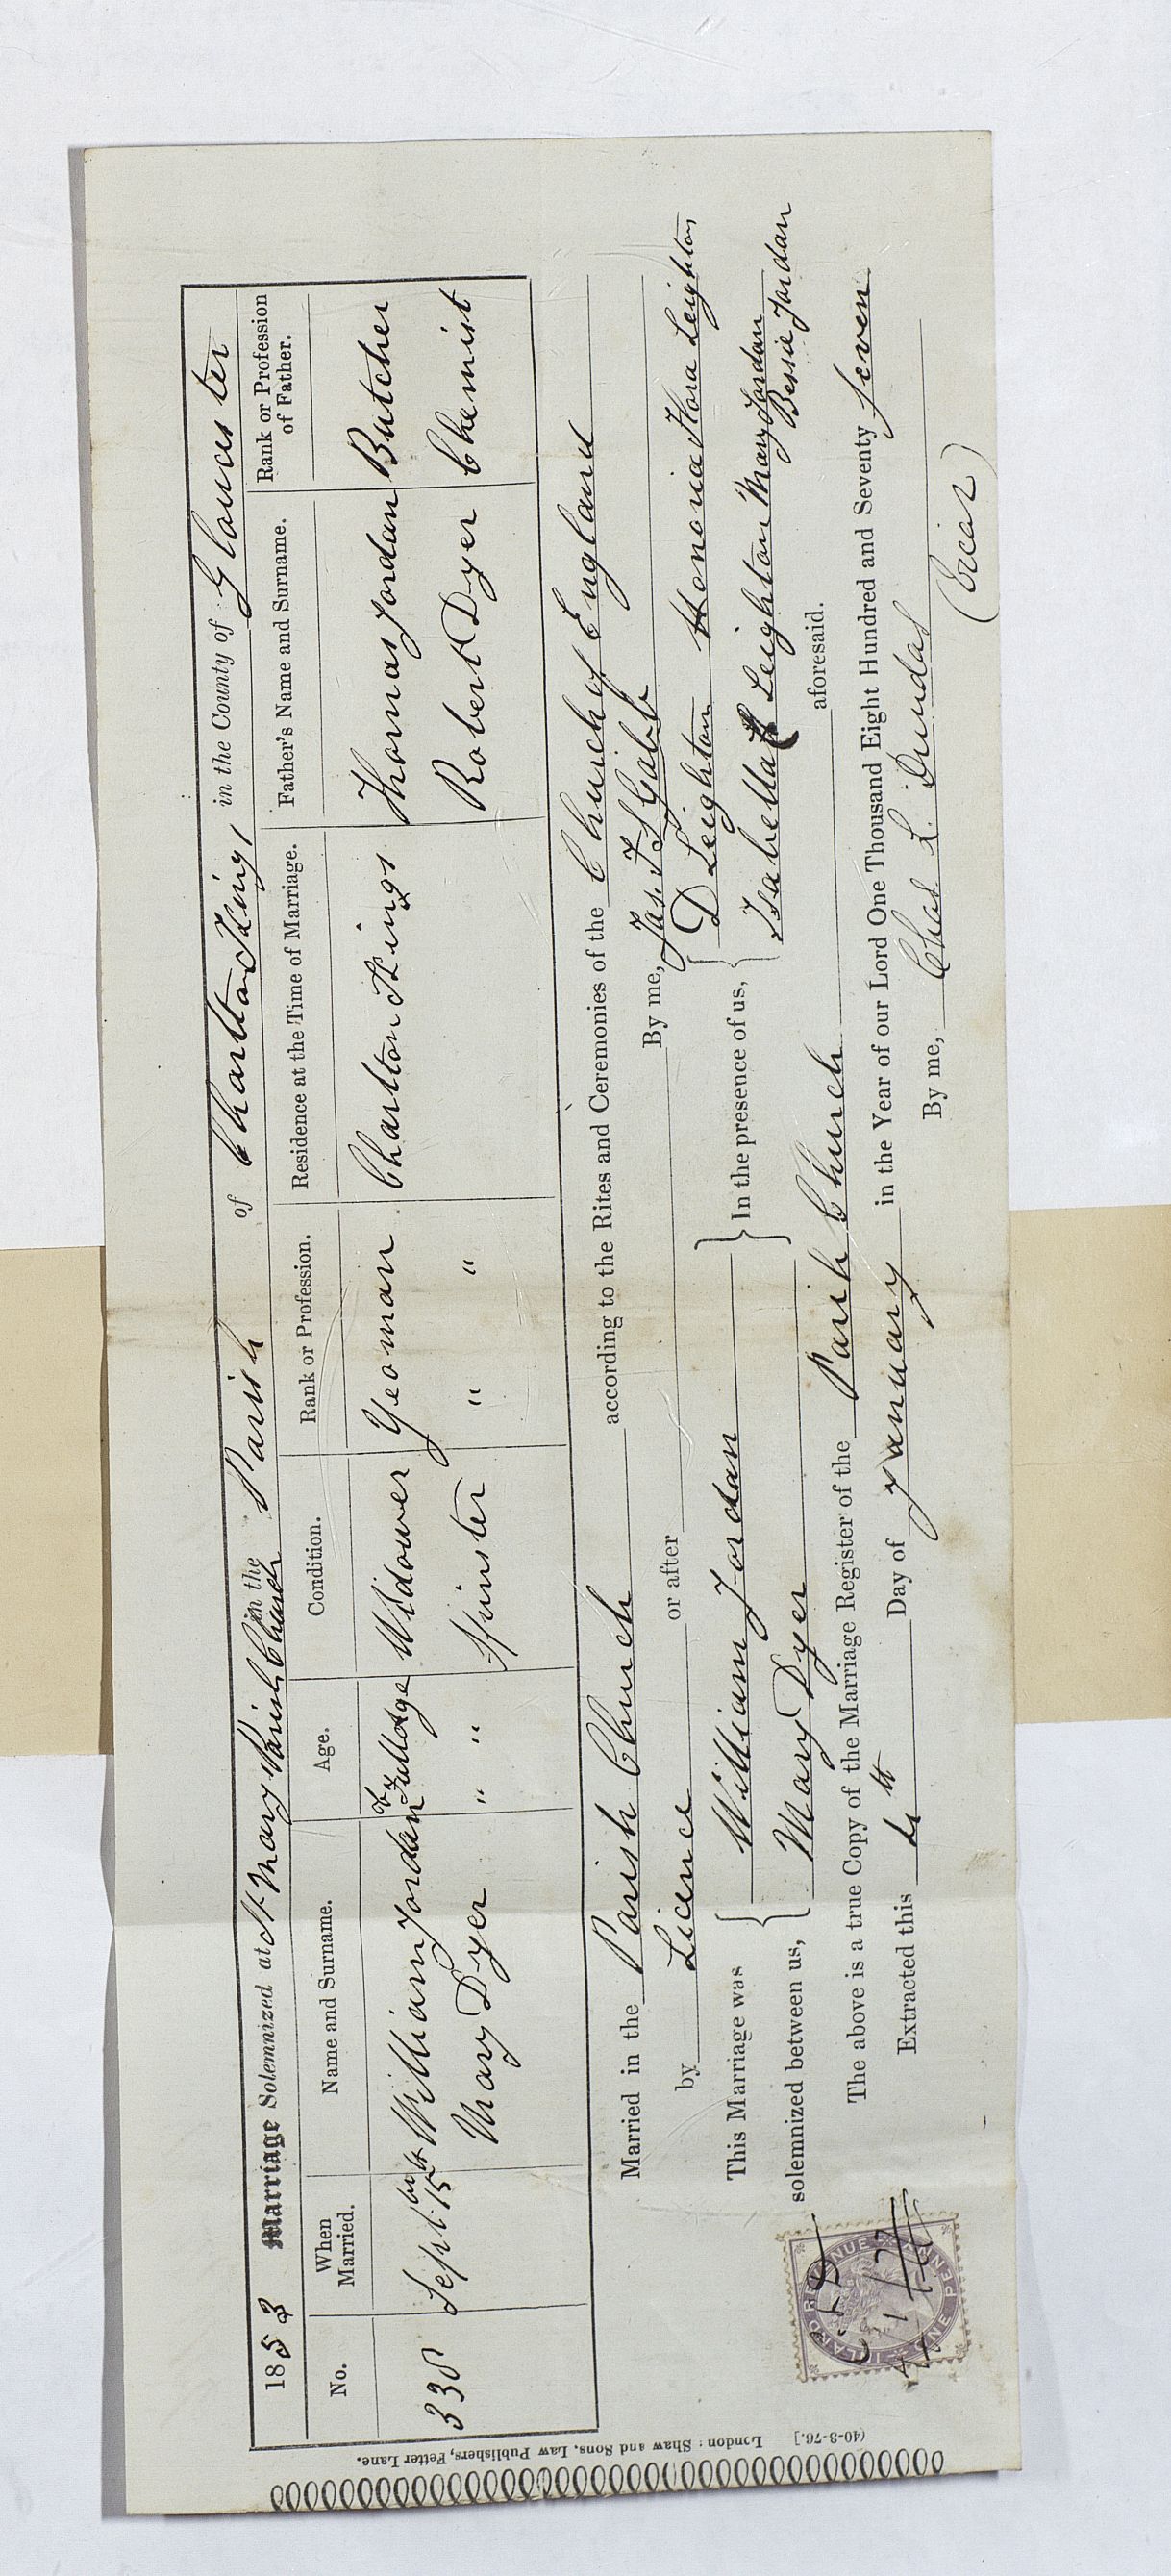 1853 Marriage Solemnized at St. Mary Parish Church in the Parish of Charlton Kings, in the County of Gloucester
No. When Married. Name and Surname. Age. Condition. Rank or Profession. Residence at the Time of Marriage. Father's Name and Surname. Rank or Profession of Father.
338 Sept. 15th William Jordan of Full Age Widower Yeoman Charlton Kings Thomas Jordan Butcher
Mary Dyer " " Spinster " " Robert Dyer Chemist
Married in the Parish Church according to the Rites and Ceremonies of the Church of England
by Licence or after By me, Jas. F S Gabb
This Marriage was solemnized between us, { William Jordan
Mary Dyer } In the presence of us, { D Leighton Honoria Flora Leighton
Isabella Leighton Mary Jordan
Bessie Jordan
The above is a true Copy of the Marriage Register of the Parish Church aforesaid.
Extracted this 4th Day of January in the Year of our Lord One Thousand Eight Hundred and Seventy seven
By me, Chas L. Dundas
(Vicar)
INLAND REVENUE
ONE PENNY
London: Shaw and Sons, Law Publishers, Fetter Lane.
(40-3-76.)